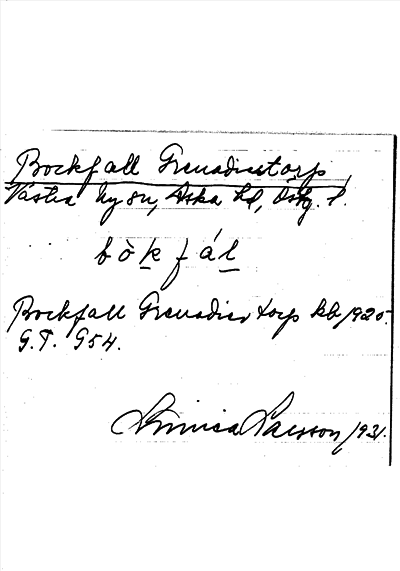 Bockfall Grenadiertorp
Västra Ny sn, Aska hd, Östg. l.
bòkfál
Bockfall Grenadiertorp kb 1920.
G.T. G54.
Linnea Larsson 1931.